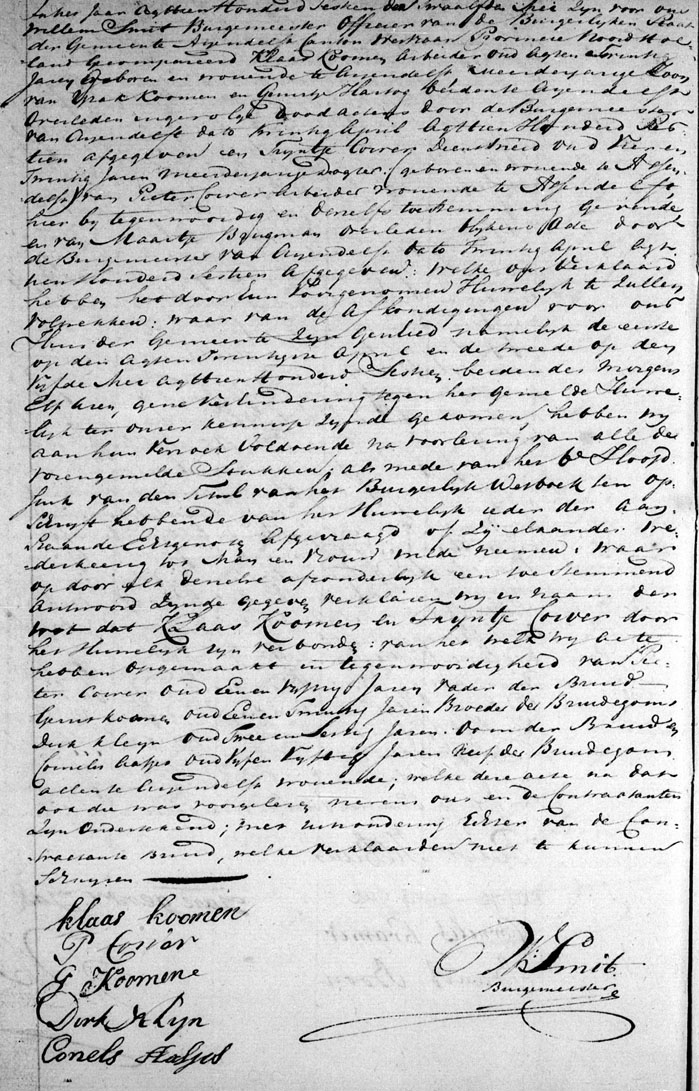 In het Jaar Agttien Honderd Sestien den twaalfden Mei Zyn voor ons
Willem Smit Burgemeester Officier van de Burgerlyken Staat
der Gemeente Assendelft Canton Westzaan Provincie Noord Hol
land Gecompareerd Klaas Koomen Arbeider oud Agt en Twintig
Jaren Geboren en wonende te Assendelft meerderjarige Zoon
van Ysak Koomen en Guurtje Hartog beidente Assendelft
Overleden ingevolge Dood actens door de Burgemeester
van Assendelft dato Twintig April Agttien Honderd Ses
tien afgegeven en Tryntje Coiver Dienstmeid oud Vier en
Twintig Jaren meerderjarige Dogter (geboren en wonende te Assen
delft) van Pieter Coiver Arbeider wonende te Assendelft
hier by tegenwoordig en deszelfs toestemming Gevende
en van Maartje Brugman overleden blykens Acte door
de Burgemeester van Assendelft dato Twintig April Agt
tien Honderd Sestien Afgegeven: welke ons verklaard
hebben het door hun Voorgenomen Huwelyk te Zullen
voltrekken: waar van de Afkondigingen voor ons
Huis der Gemeente Zyn Geschied namelyk de eerste
op den Agten Twintigste April en de tweede op den
Vyfde Mei Agttien Honderd Sestien beiden des morgens
Elf Uren, gene Verhindering tegen het gemelde Huwe
lyk ter onser kennisse Zynde Gekomen, hebben wy
aan hun Versoek Voldoende na voorlesing van alle de
vorengemelde Stukken; als mede van het 6e Hoofd
stuk van den Titul van het Burgerlyk Wetboek ten op
Schrift hebbende van het Huwelyk ieder der Aan
staande Echtgenoten Afgevraagd of Zy elkander we
derkeerig tot Man en Vrouw wilde neemen: waar
op door elk denelve afzonderlyk een toestemmend
Antwoord Zynde gegeven verklaren wy in naam der
wet dat Klaas Koomen en Tryntje Coiver door
het Huwelyk zyn verbonden: van het welk wy acte
hebben opgemaakt in tegenwoordigheid van Pie
ter Coiver oud Een en Vyftig Jaren vader der Bruid
Gerrit Koomen oud Een en Twintig Jaren Broeder des Bruidegoms
Dirk Kleyn oud Twee en Sestig Jaren Oom der Bruid en
Cornelis Aafjes oud Vyf en Vyftig Jaren Neef des Bruidegoms
allen te Assendelft wonende; welke dese acte na dat
aan die was voorgelesen nevens ons en de Contractanten
Zyn Ondertekend; met uitsondering Echter van de Con
tractante Bruid, welke verklaarden niet te kunnen
Schryven
klaas koomen
P Coiver
G Koomene
Dirk Klyn
Conels Aafjes
W: Smit.
Burgemeester